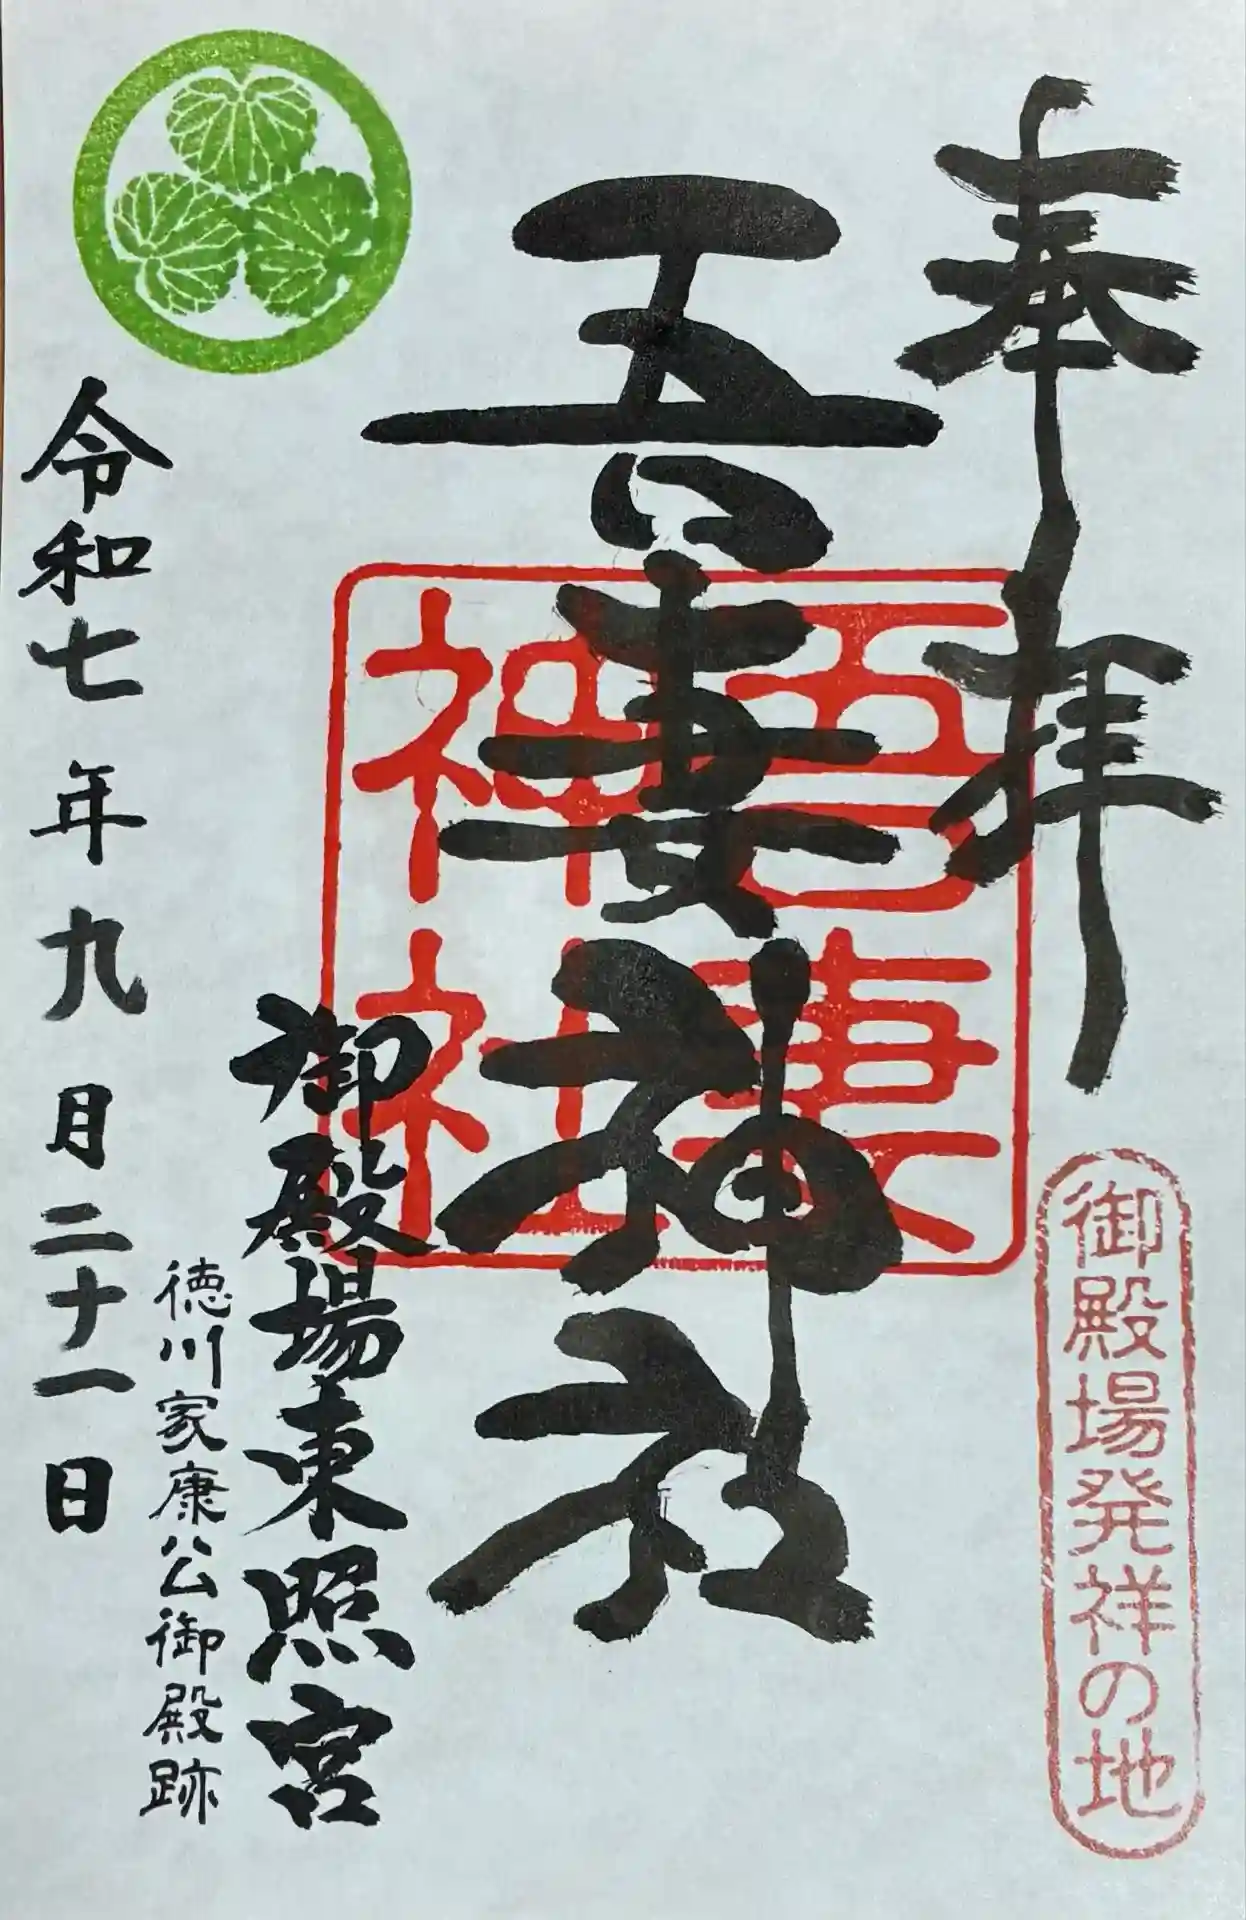 奉拝
御殿場発祥の地
吾妻神社
吾妻
神社
御殿場東照宮
徳川家康公御殿跡
令和七年九月二十一日